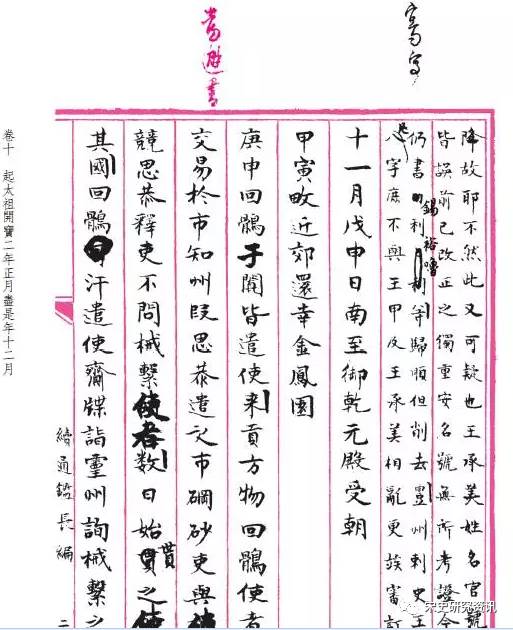 降故耶不然此又可疑也王承美姓名官號
皆誤前已改正之獨重安名號無所考證今
仍書 利 錫裕嚕 等歸順但削去豐州刺史王
八字庶不與王甲及王承美相亂更 審訂
十一月戊申日南至御乾元殿受朝
甲寅畋近郊還幸金鳳園
庚申回鶻于闐皆遣使来貢方物回鶻使者
交易於市知州段思恭遣吏市碙砂吏與
競思恭釋吏不問械繫使者數日始貰之使
其國回鶻 汗遣使齎牒詣靈州詢械繫之
續通鑑長編 二
卷十 起太祖開寶二年正月盡是年十二月
宋史研究资讯